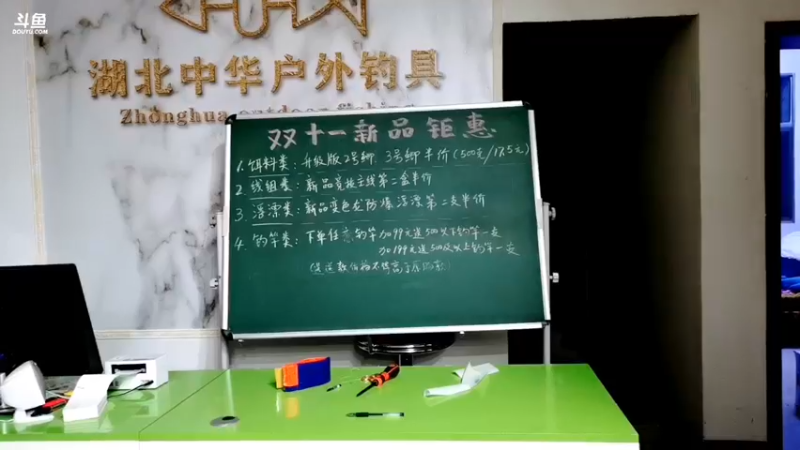 斗鱼
DOUYU.COM
湖北中华户外钓具
Zhonghua outdoor fishing
双十一新品钜惠
1. 饵料类：升级版2号鲫、3号鲫半价(500克/18.5元)
2. 线组类：新品竞技主线第二盒半价
3. 浮漂类：新品变色龙防爆浮漂第二支半价
4. 钓竿类：下单任意钓竿加99元送500以下钓竿一支
加199元送500及以上钓竿一支